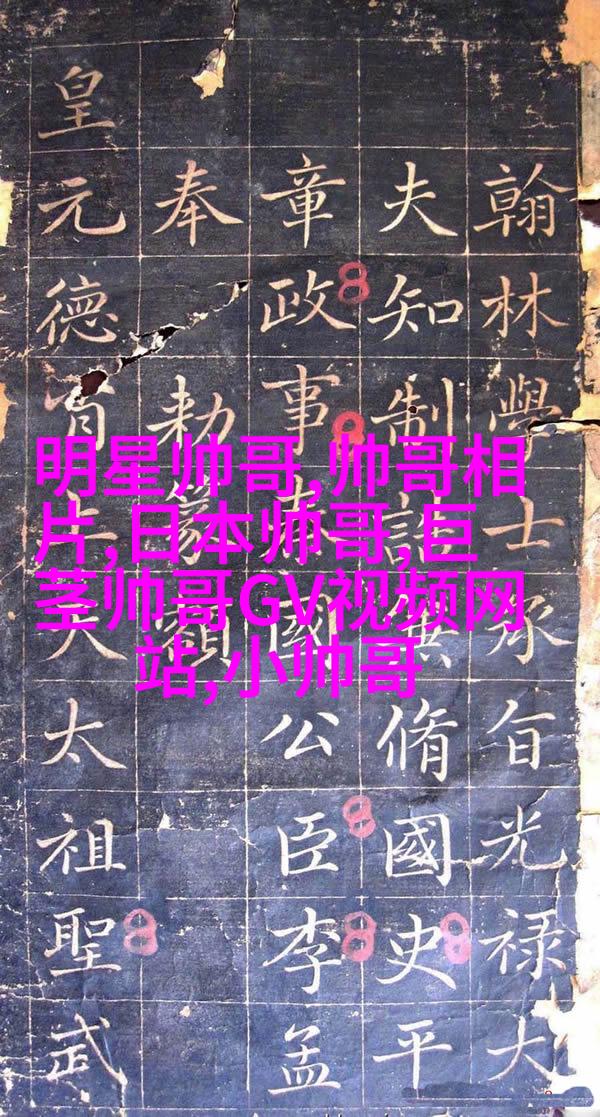 翰林學士承旨光禄大
夫知制誥兼脩國史平
章政事國公臣李孟
奉勅篆額
皇元德大太祖聖武
明星帅哥,帅哥相
片,日本帅哥,巨
茎帅哥GV视频网
站,小帅哥